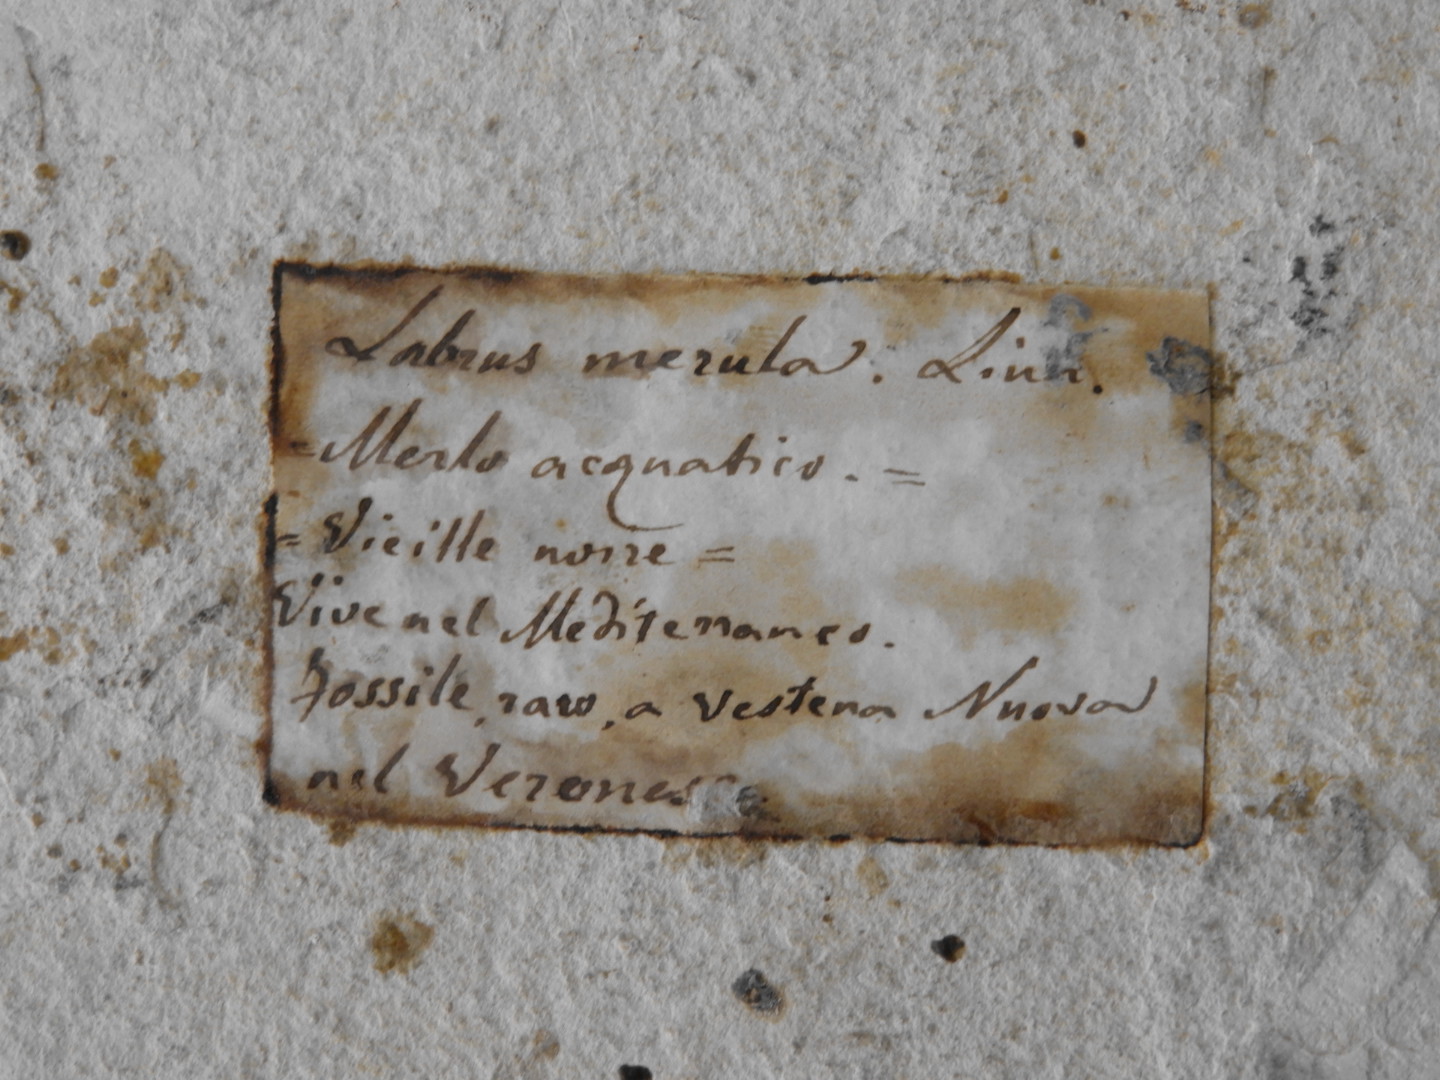 Labrus merula. Linn.
=Merlo acquatico.=
=Vieille noire=
Vive nel Mediterraneo.
Fossile, raro, a Vestena Nuova
nel Veronese